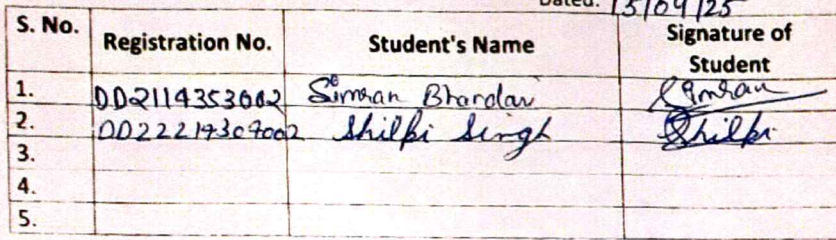 Dated: 15/09/25
S. No. Registration No. Student's Name Signature of Student
1. DD2114353002 Simran Bhandari Simran
2. DD22214307002 Shilpi Singh Shilpi
3.
4.
5.